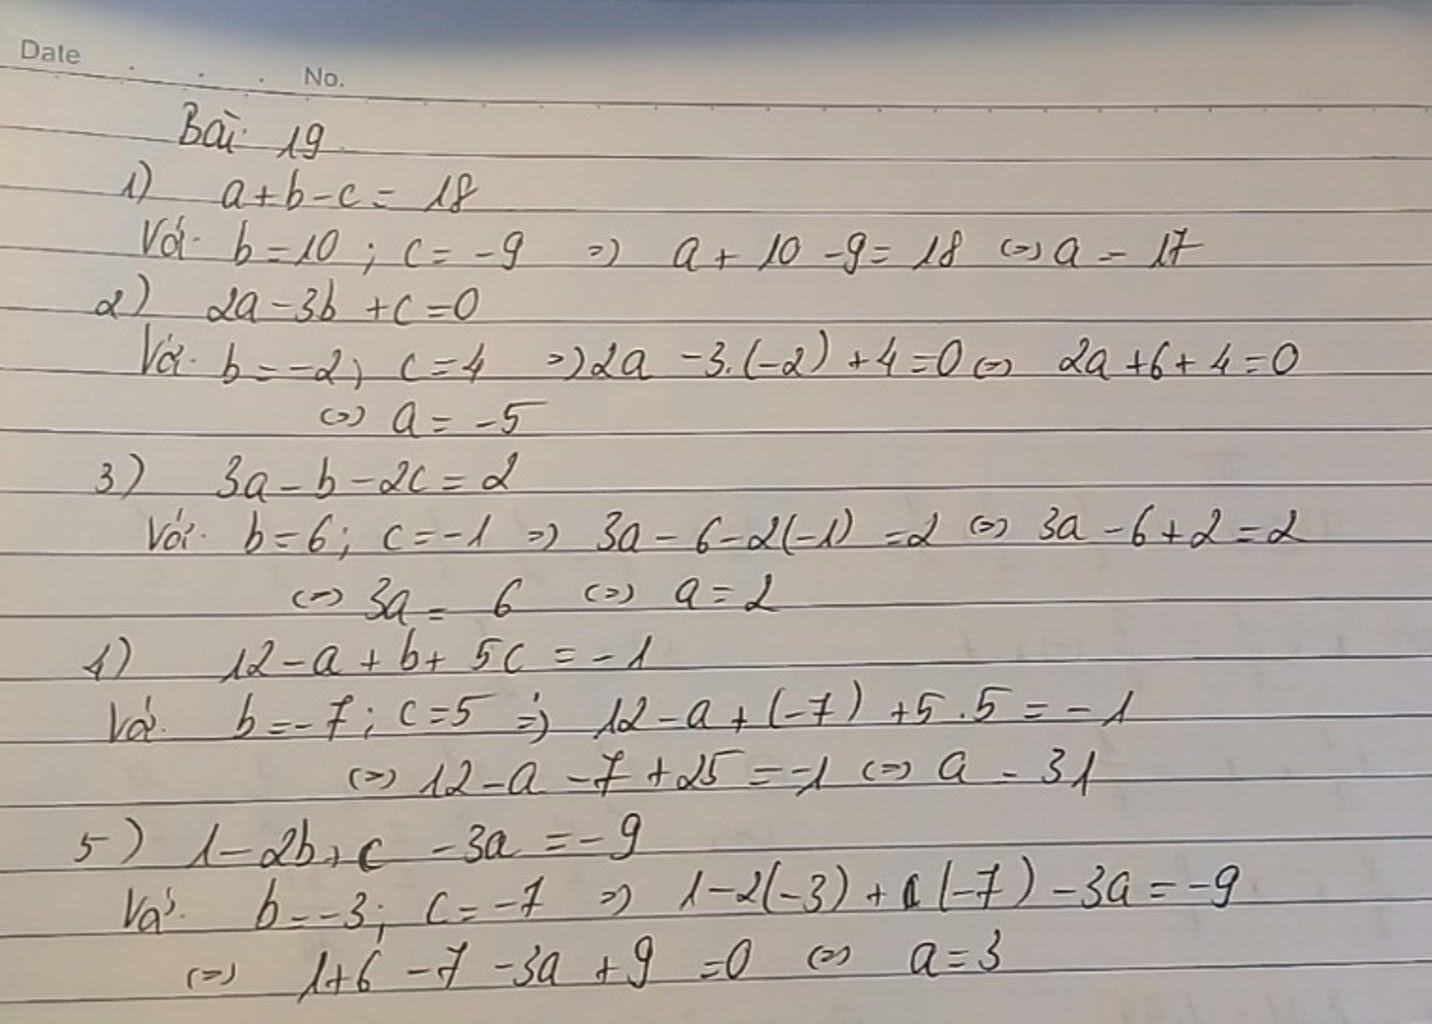 Date . . . No.
Bài 19
1) a+b-c= 18
Với b=10; c= -9 => a+ 10 -9= 18 <=> a = 17
2) 2a-3b +c=0
Với b=-2; c=4 => 2a -3.(-2) +4=0 <=> 2a+6+4=0
<=> a= -5
3) 3a-b-2c=2
Với b=6; c=-1 => 3a-6-2(-1) =2 <=> 3a-6+2=2
<=> 3a= 6 <=> a=2
4) 12-a+b+ 5c =-1
Với b=-7; c=5 => 12-a+(-7) +5.5=-1
<=> 12-a -7+25=-1 <=> a = 31
5) 1-2b+c -3a =-9
Với b=-3; c=-7 => 1-2(-3)+(-7)-3a=-9
<=> 1+6 -7 -3a +9 =0 <=> a=3